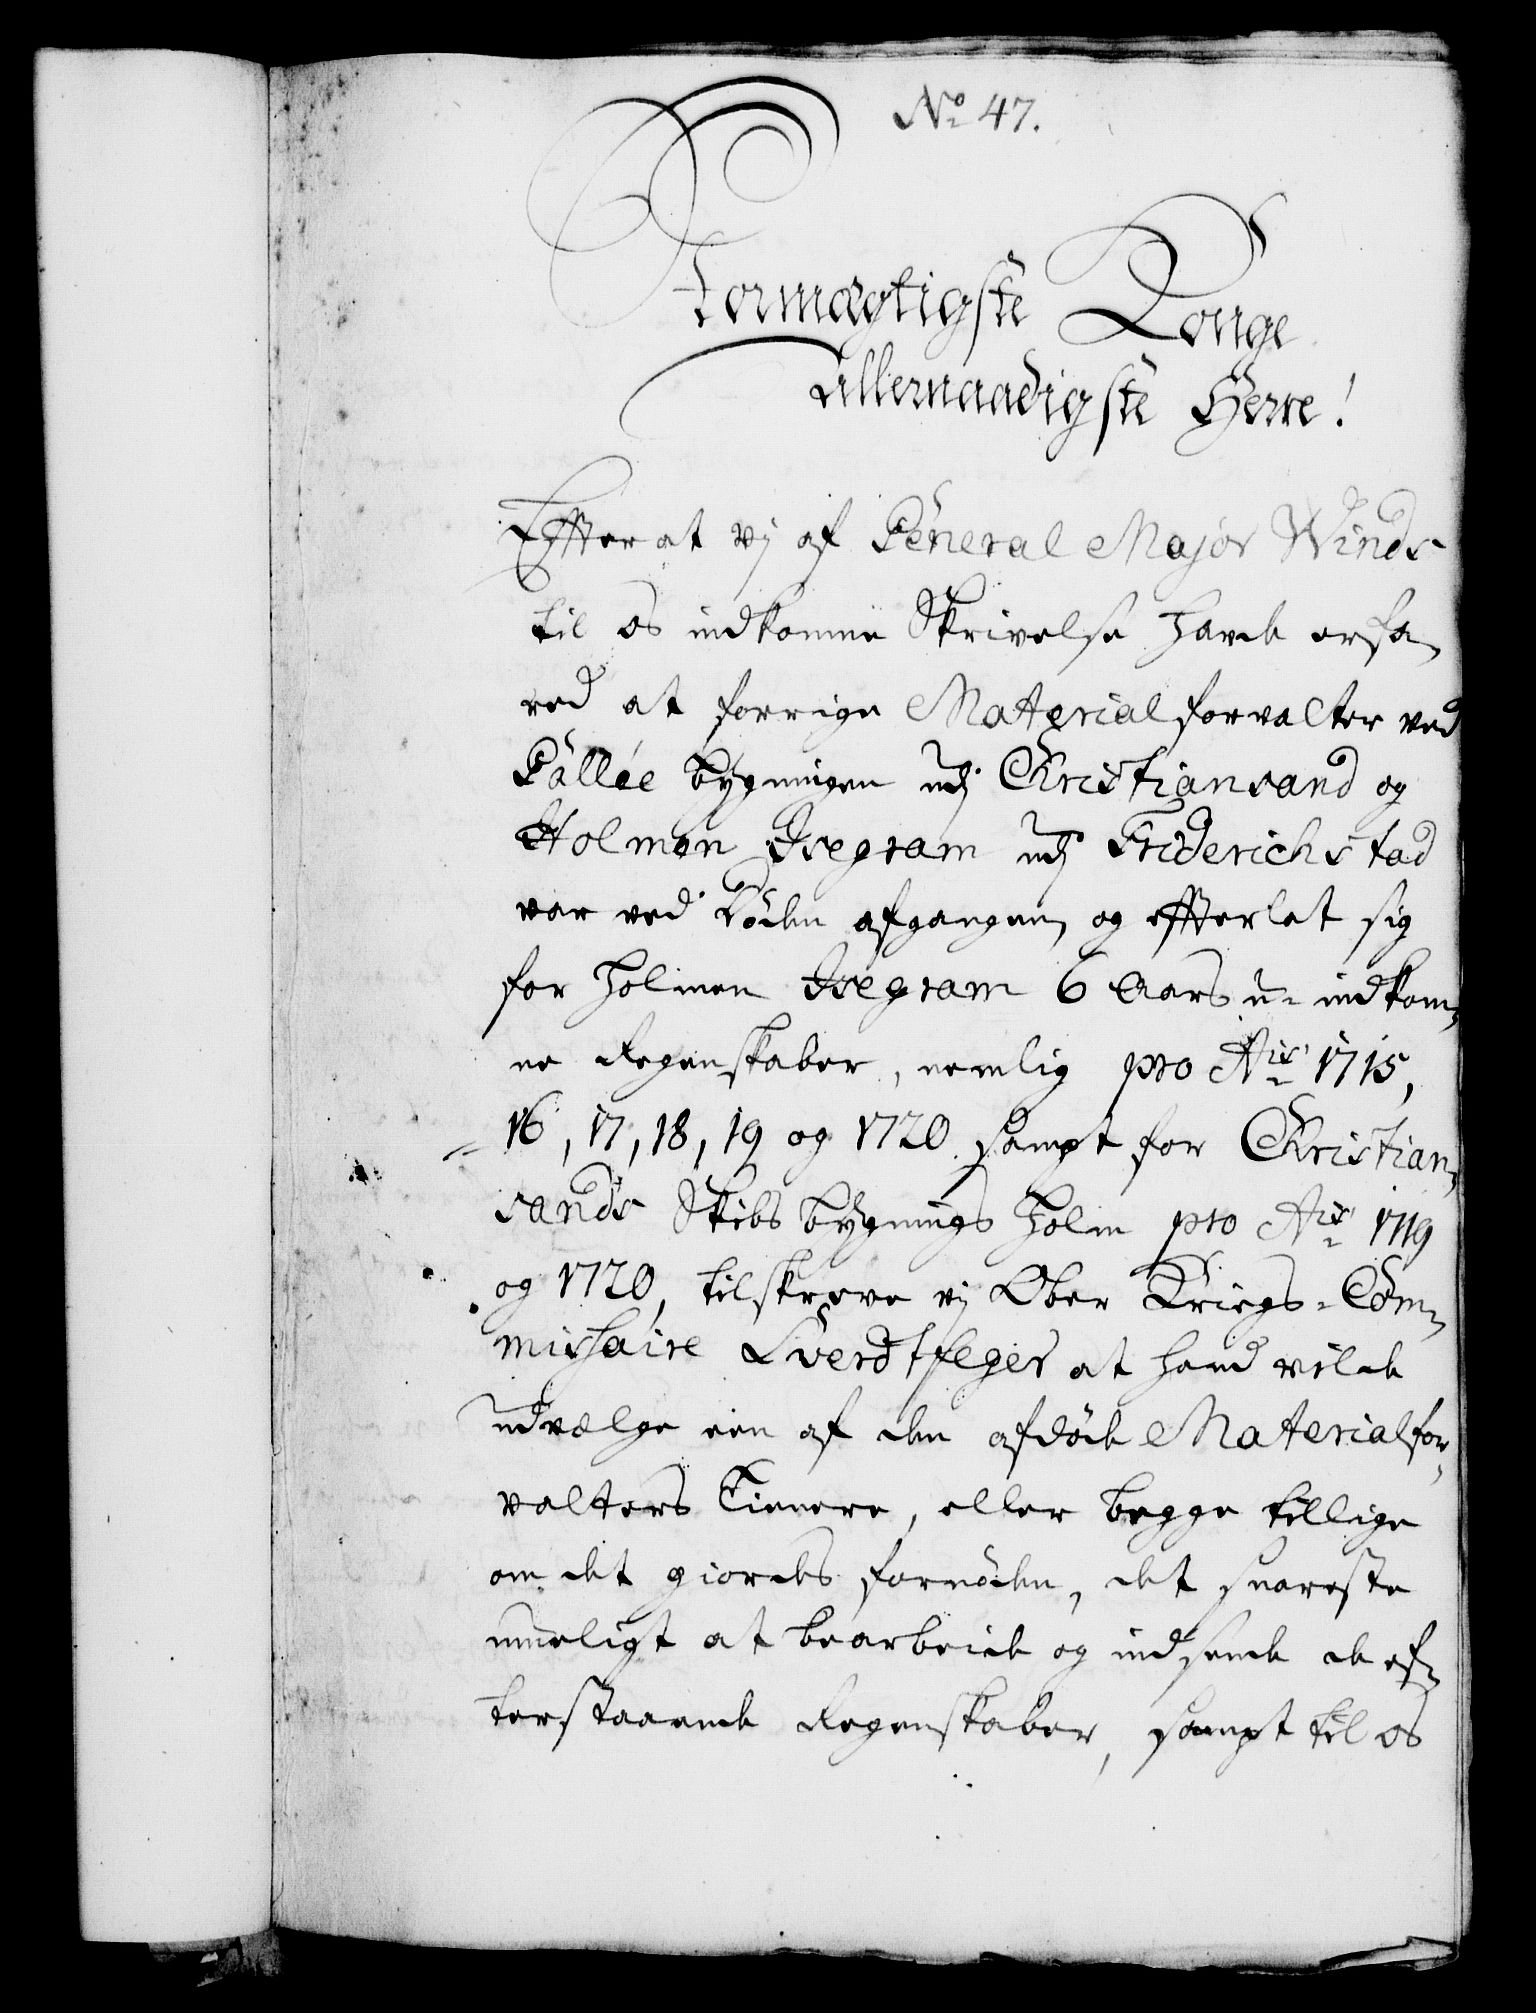 No 47.
Stormægtigste Konge
Allernaadigste Herre!
Effter at vj af General Major Winds
til os indkomne Skrivelse hafde erfa-
red at forrige Materialforvalter ved
Galleé bygningen udj Christiansand og
Holmen Isegram udj Friderichstad
var ved Døden afgangen, og effterlat sig
for Holmen Isegram 6 Aars u-indkom-
ne Regenskaber, nemlig pro Ais 1715,
16, 17, 18, 19 og 1720 sampt for Christian-
sands Skibs bygnings Holm pro Ais 1719
og 1720, tilskreve vj Ober Kriegs-Com-
missaire Sverdtfeger at hand vilde
udvælge een af den afdøde Materialfor-
valters Tienere, eller begge tillige
om det giordes fornøden, det snareste
mueligt at bearbeide og indsende de ef-
terstaaende Regenskaber, sampt til os